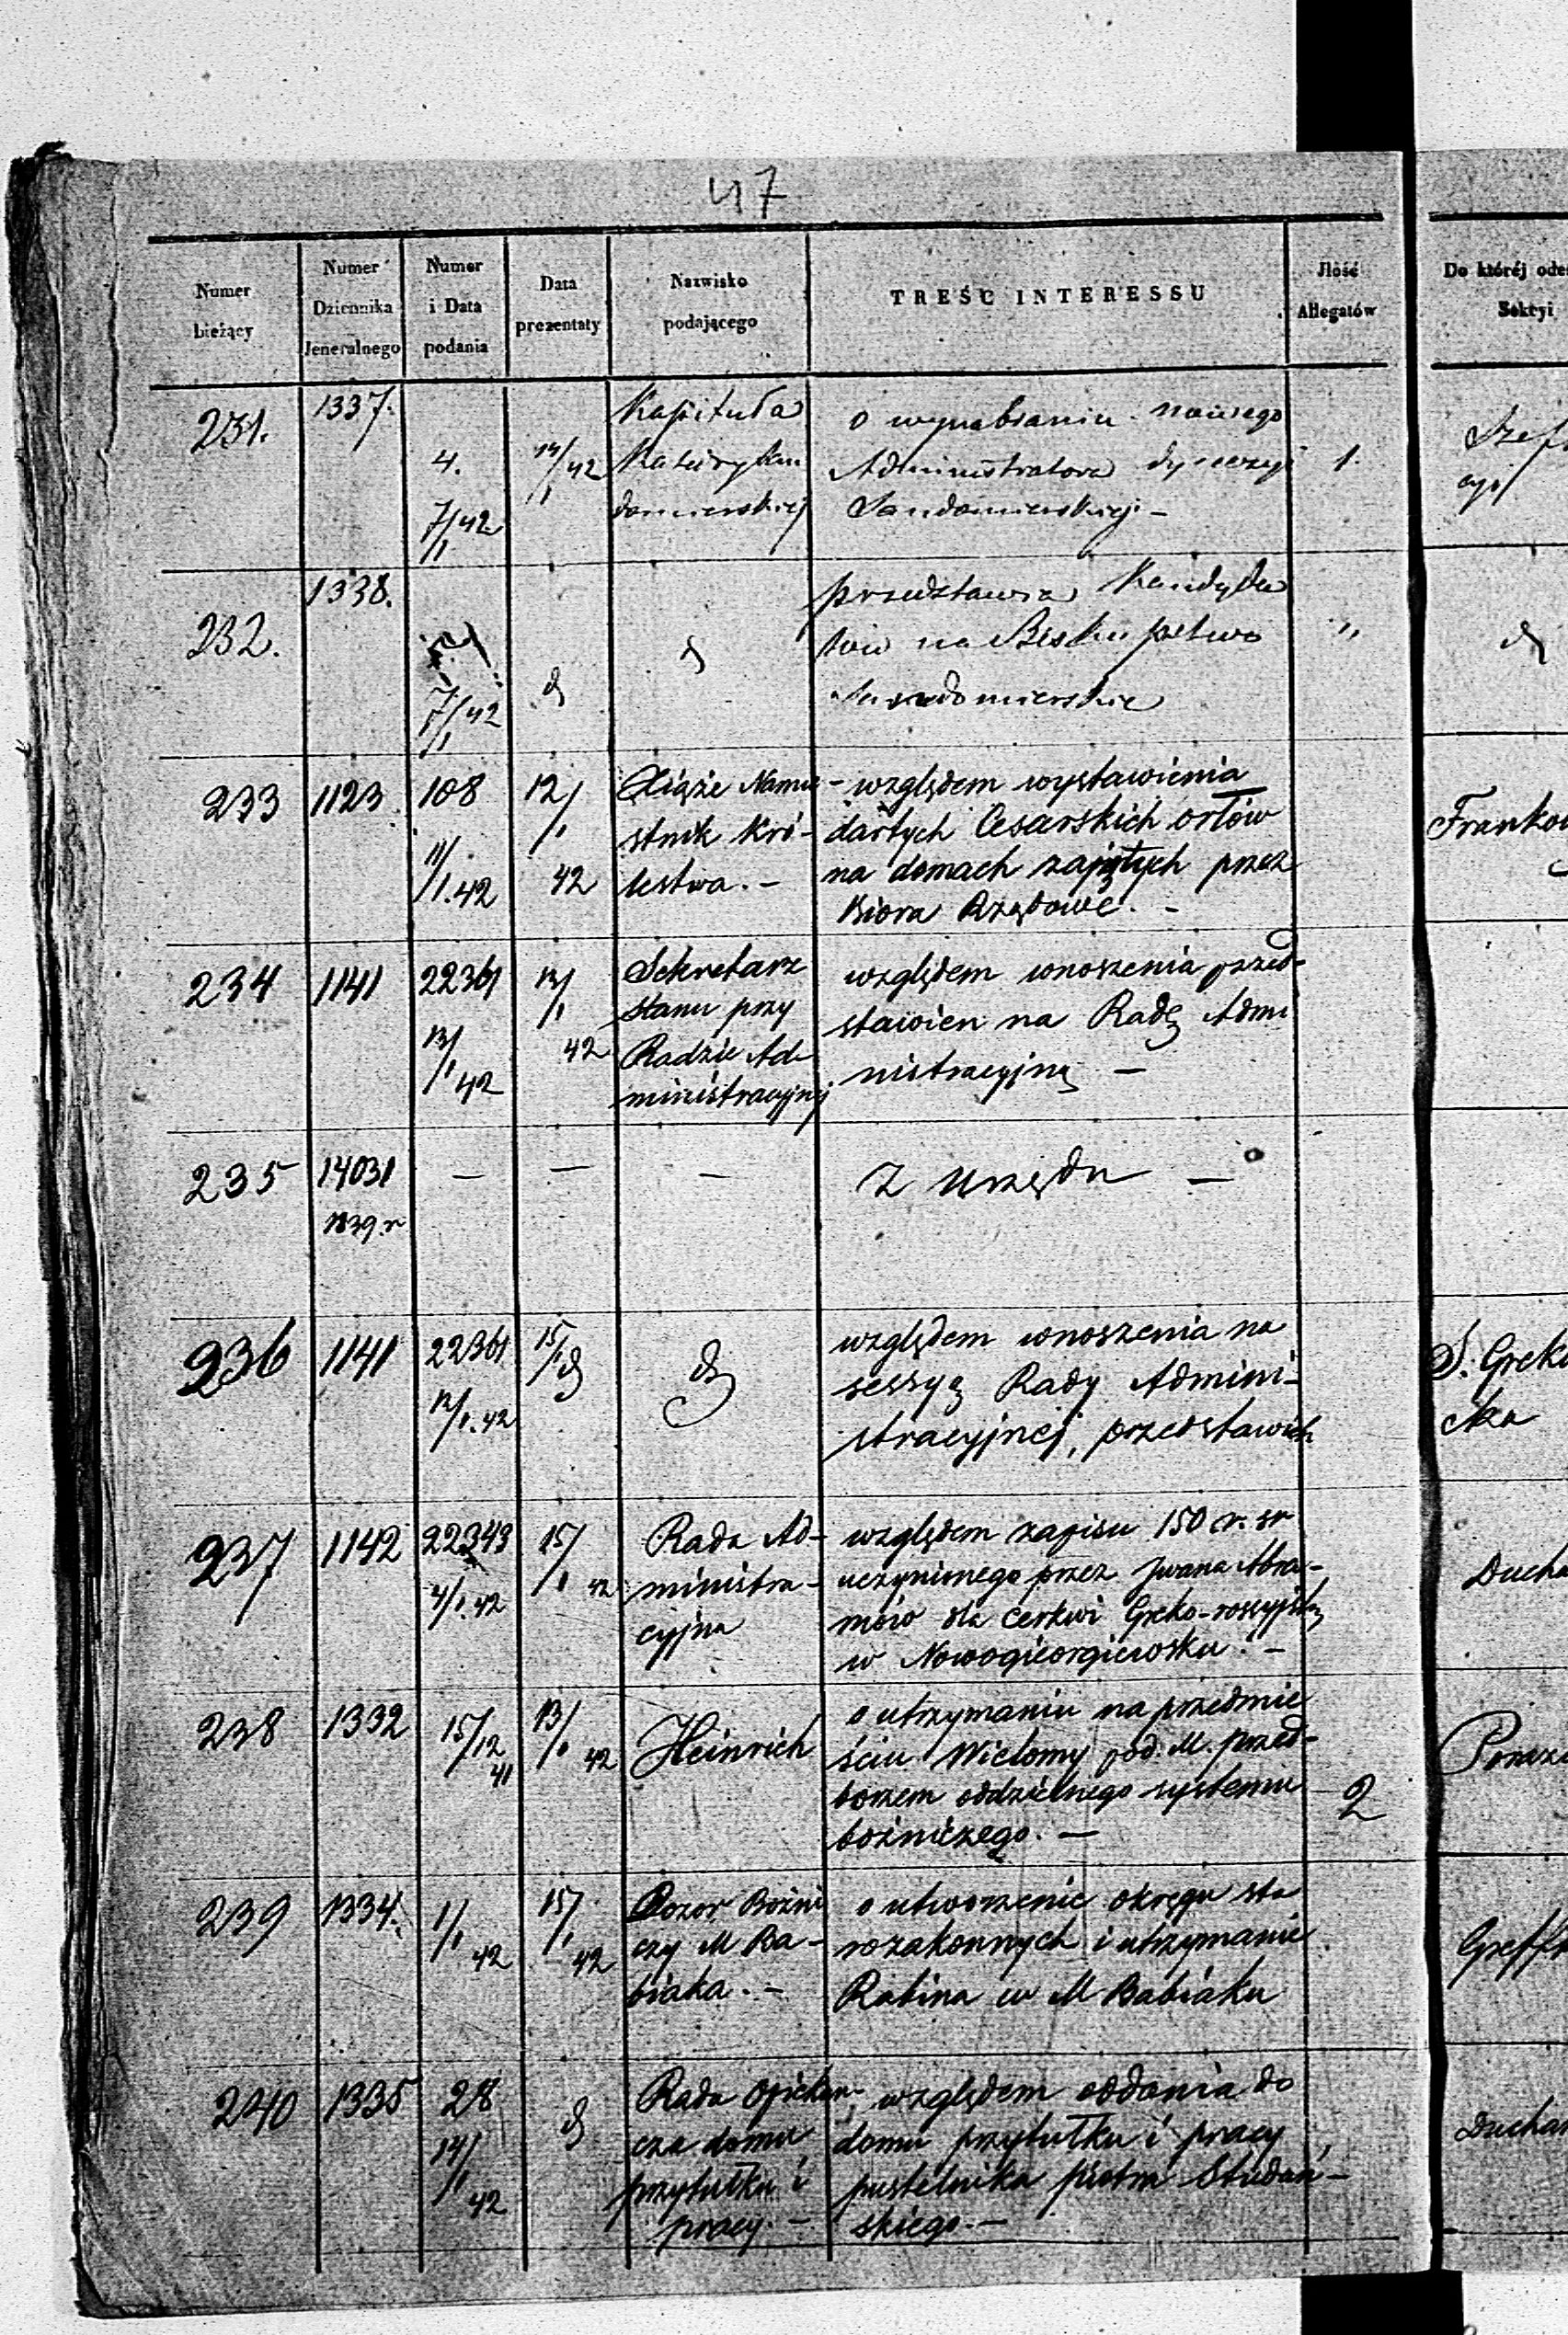 47
Numer bieżący
Numer Dziennika Jeneralnego
Numer i Data podania
Data prezentaty
Nazwisko podającego
TREŚĆ INTERESSU
Jlość Allegatów
Do któréj ode
Sekcyi
231. 1337. 4. 7/1 42 14/1 42
Kapituła
Katedry
domierskiej
o wynabraniu nowego
Administratora dyecezyi
Sandomierskiej. –
1.
232. 1338. 7/1 42 d d
przedstawia Kandyda
tów na Biskupstwo
Sandomierskie
"
d
233 1123. 108 11/1.42 12/1 42
Xiąże Namie-
stnik Kró-
lestwa. –
względem wystawienia
dartych Cesarskich orłów
na domach zajętych przez
Biora Rządowe. –
234 1141 22361 13/1 42 13/1 42
Sekretarz
Stanu przy
Radzie Ad-
ministracyjnej
względem wnoszenia przed-
stawien na Radę Admi
nistracyjną –
235 14031 1839.r – – –
Z Urzędu –
236 1141 22361 12/1.42 15/1 d d
względem wnoszenia na
sessyą Rady Admini-
stracyjnej, przedstawień
S. Greko
cka
237 1142 22343 4/1.42 15/1 42
Rada Ad-
ministra-
cyjna
względem zapisu 150 r. sr
uczynionego przez Jwana Abra-
mów dla Cerkwi Greko-rossyjskiej
w Nowogieorgiewsku. –
Ducha
238 1332 15/12 41 13/1 42
Heinrich
o utrzymaniu na przedmie
ściu Wielomy pod. M. przed-
borzem oddzielnego systemu
bożniczego. –
2
239 1334. 1/1 42 15/1 42
Dozor Bożni
czy M Ba-
biaka. –
o utworzenie okręgu sta
rozakonnych i utrzymanie
Rabina w M Babiaku
240 1335 28 14/1 42 d
Rada Opiekuń-
cza domu
przytułku i
pracy. –
względem oddania do
domu przytułku i pracy
pustelnika Piotra Studań-
skiego. –